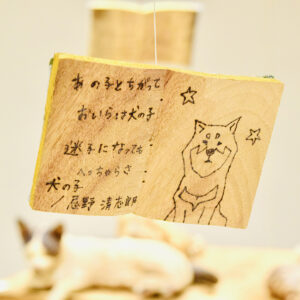 あの子とちがって
おいらは犬の子
迷子になっても
へっちゃらさ
犬の子
/忌野 清志郎